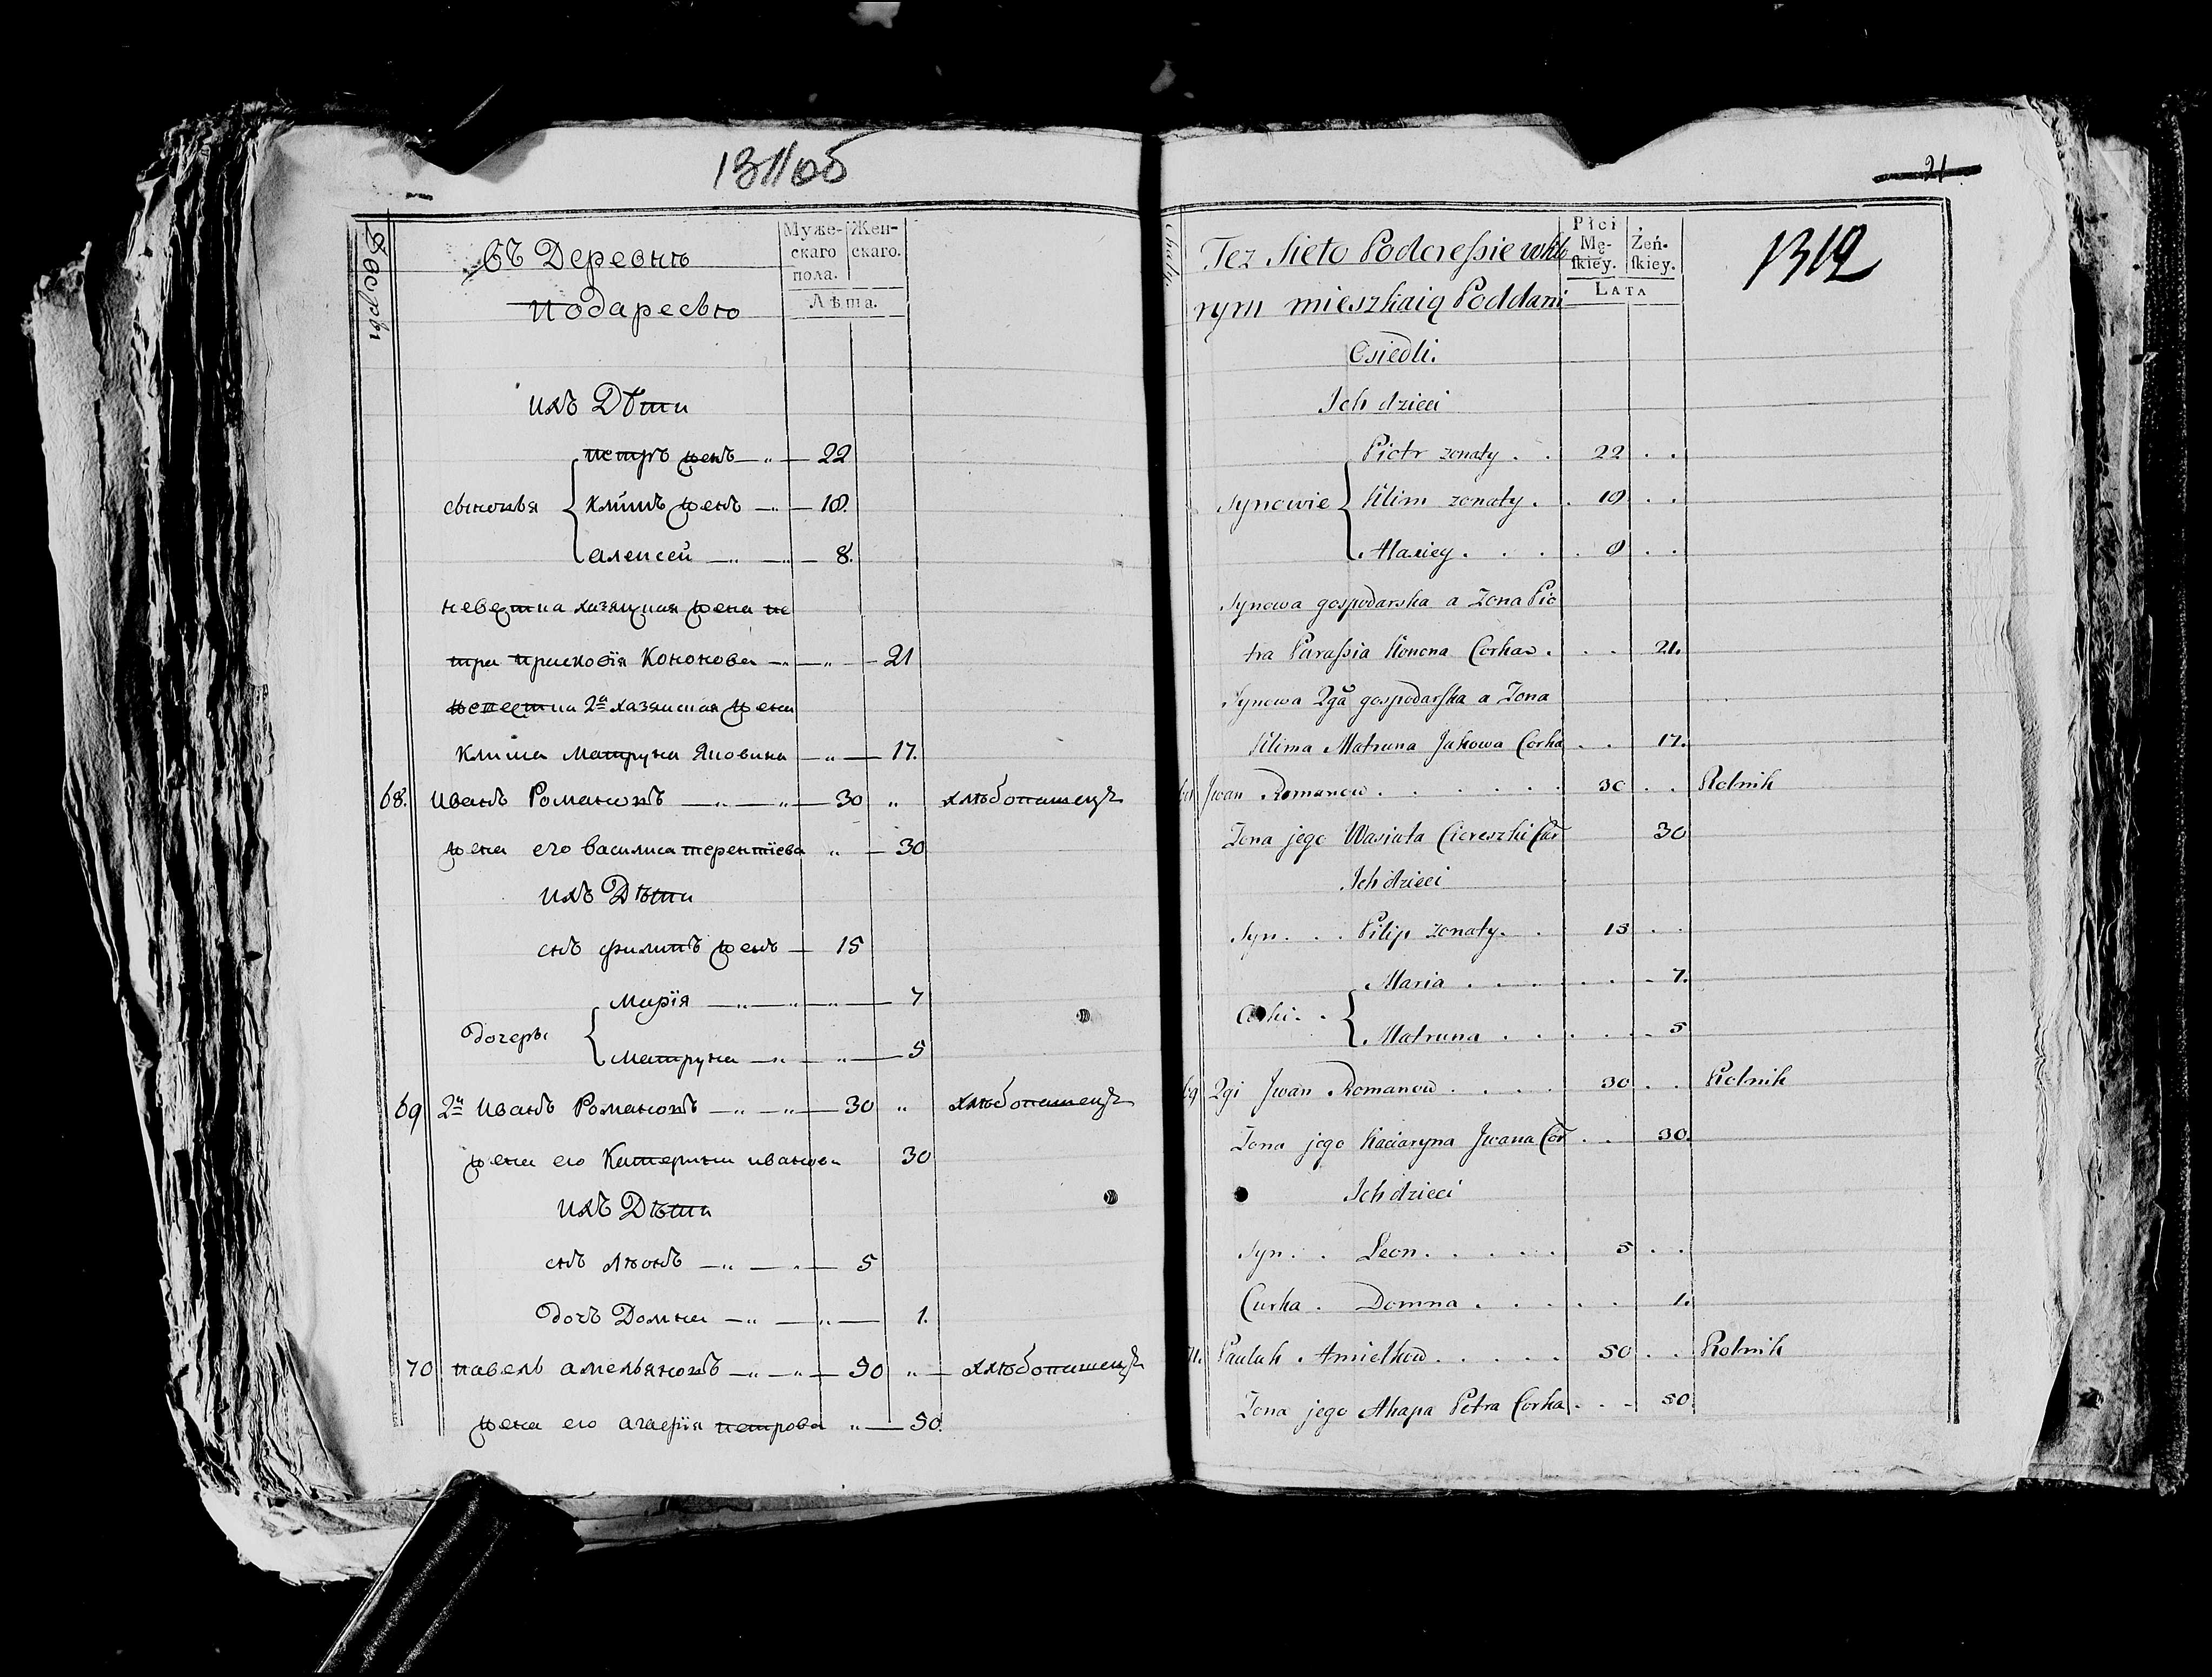 1311об
Дворы
въ Деревнѣ
Подаресью
Муже-
скаго
пола.
Жен-
скаго.
Лѣта.
ихъ Дѣти
сыновья
Петръ жен 22
Климъ жен 18.
Алексей 8.
невестка хазяиская жена Пе
тра Прасковія Кононова 21
невестка 2я хазяиская жена
Клима Матруна Яковина 17.
68. Иванъ Романовъ 30 " хлѣбопашецъ
жена его Василиса Терентіева " 30
ихъ Дѣти
снъ Филипъ жен 15
дочеры
Марія " 7
Матруна " 5
69 2й Иванъ Романовъ 30 " хлѣбопашецъ
жена его Катерина Иванова 30
ихъ Дѣти
снъ Лѣонъ 5
дочъ Домна " 1.
70 Павелъ Амельяновъ 50 " хлѣбопашецъ
жена его Агафія Петрова " 50.
21
1312
Chaty
Tez Sieło Podereſsie w któ
rym mieszkaią Poddani
Osiedli.
Płci
Mę-
ſkiey.
Żeń-
ſkiey.
LATA
Ich dzieci
Synowie
Piotr zonaty . . 22 . .
Klim zonaty . . 18 . .
Alaxiey . . . . 8 . .
Synowa gospodarska a Zona Pio
tra Paraſsia Konona Corka . . . 21.
Synowa 2ga gospodarſka a Zona
Klima Matruna Jakowa Corka . . 17.
68 Jwan Romanow . . . . . . 30 . . Rolnik
Zona jego Wasiuta Ciereszki Cór 30
Ich dzieci
Syn . . . Pilip zonaty . . 15 . .
Corki . .
Maria . . . . . . 7.
Matruna . . . . . . 5
69 2gi Jwan Romanow . . . . 30 . . Rolnik
Zona jego Kaciaryna Jwana Cór . . 30.
Ich dzieci
Syn . . Leon . . . . . 5 . .
Curka . Domna . . . . . 1.
Pauluk Amielkow . . . . . 50 . . Rolnik
Zona jego Ahapa Petra Corka . . . 50